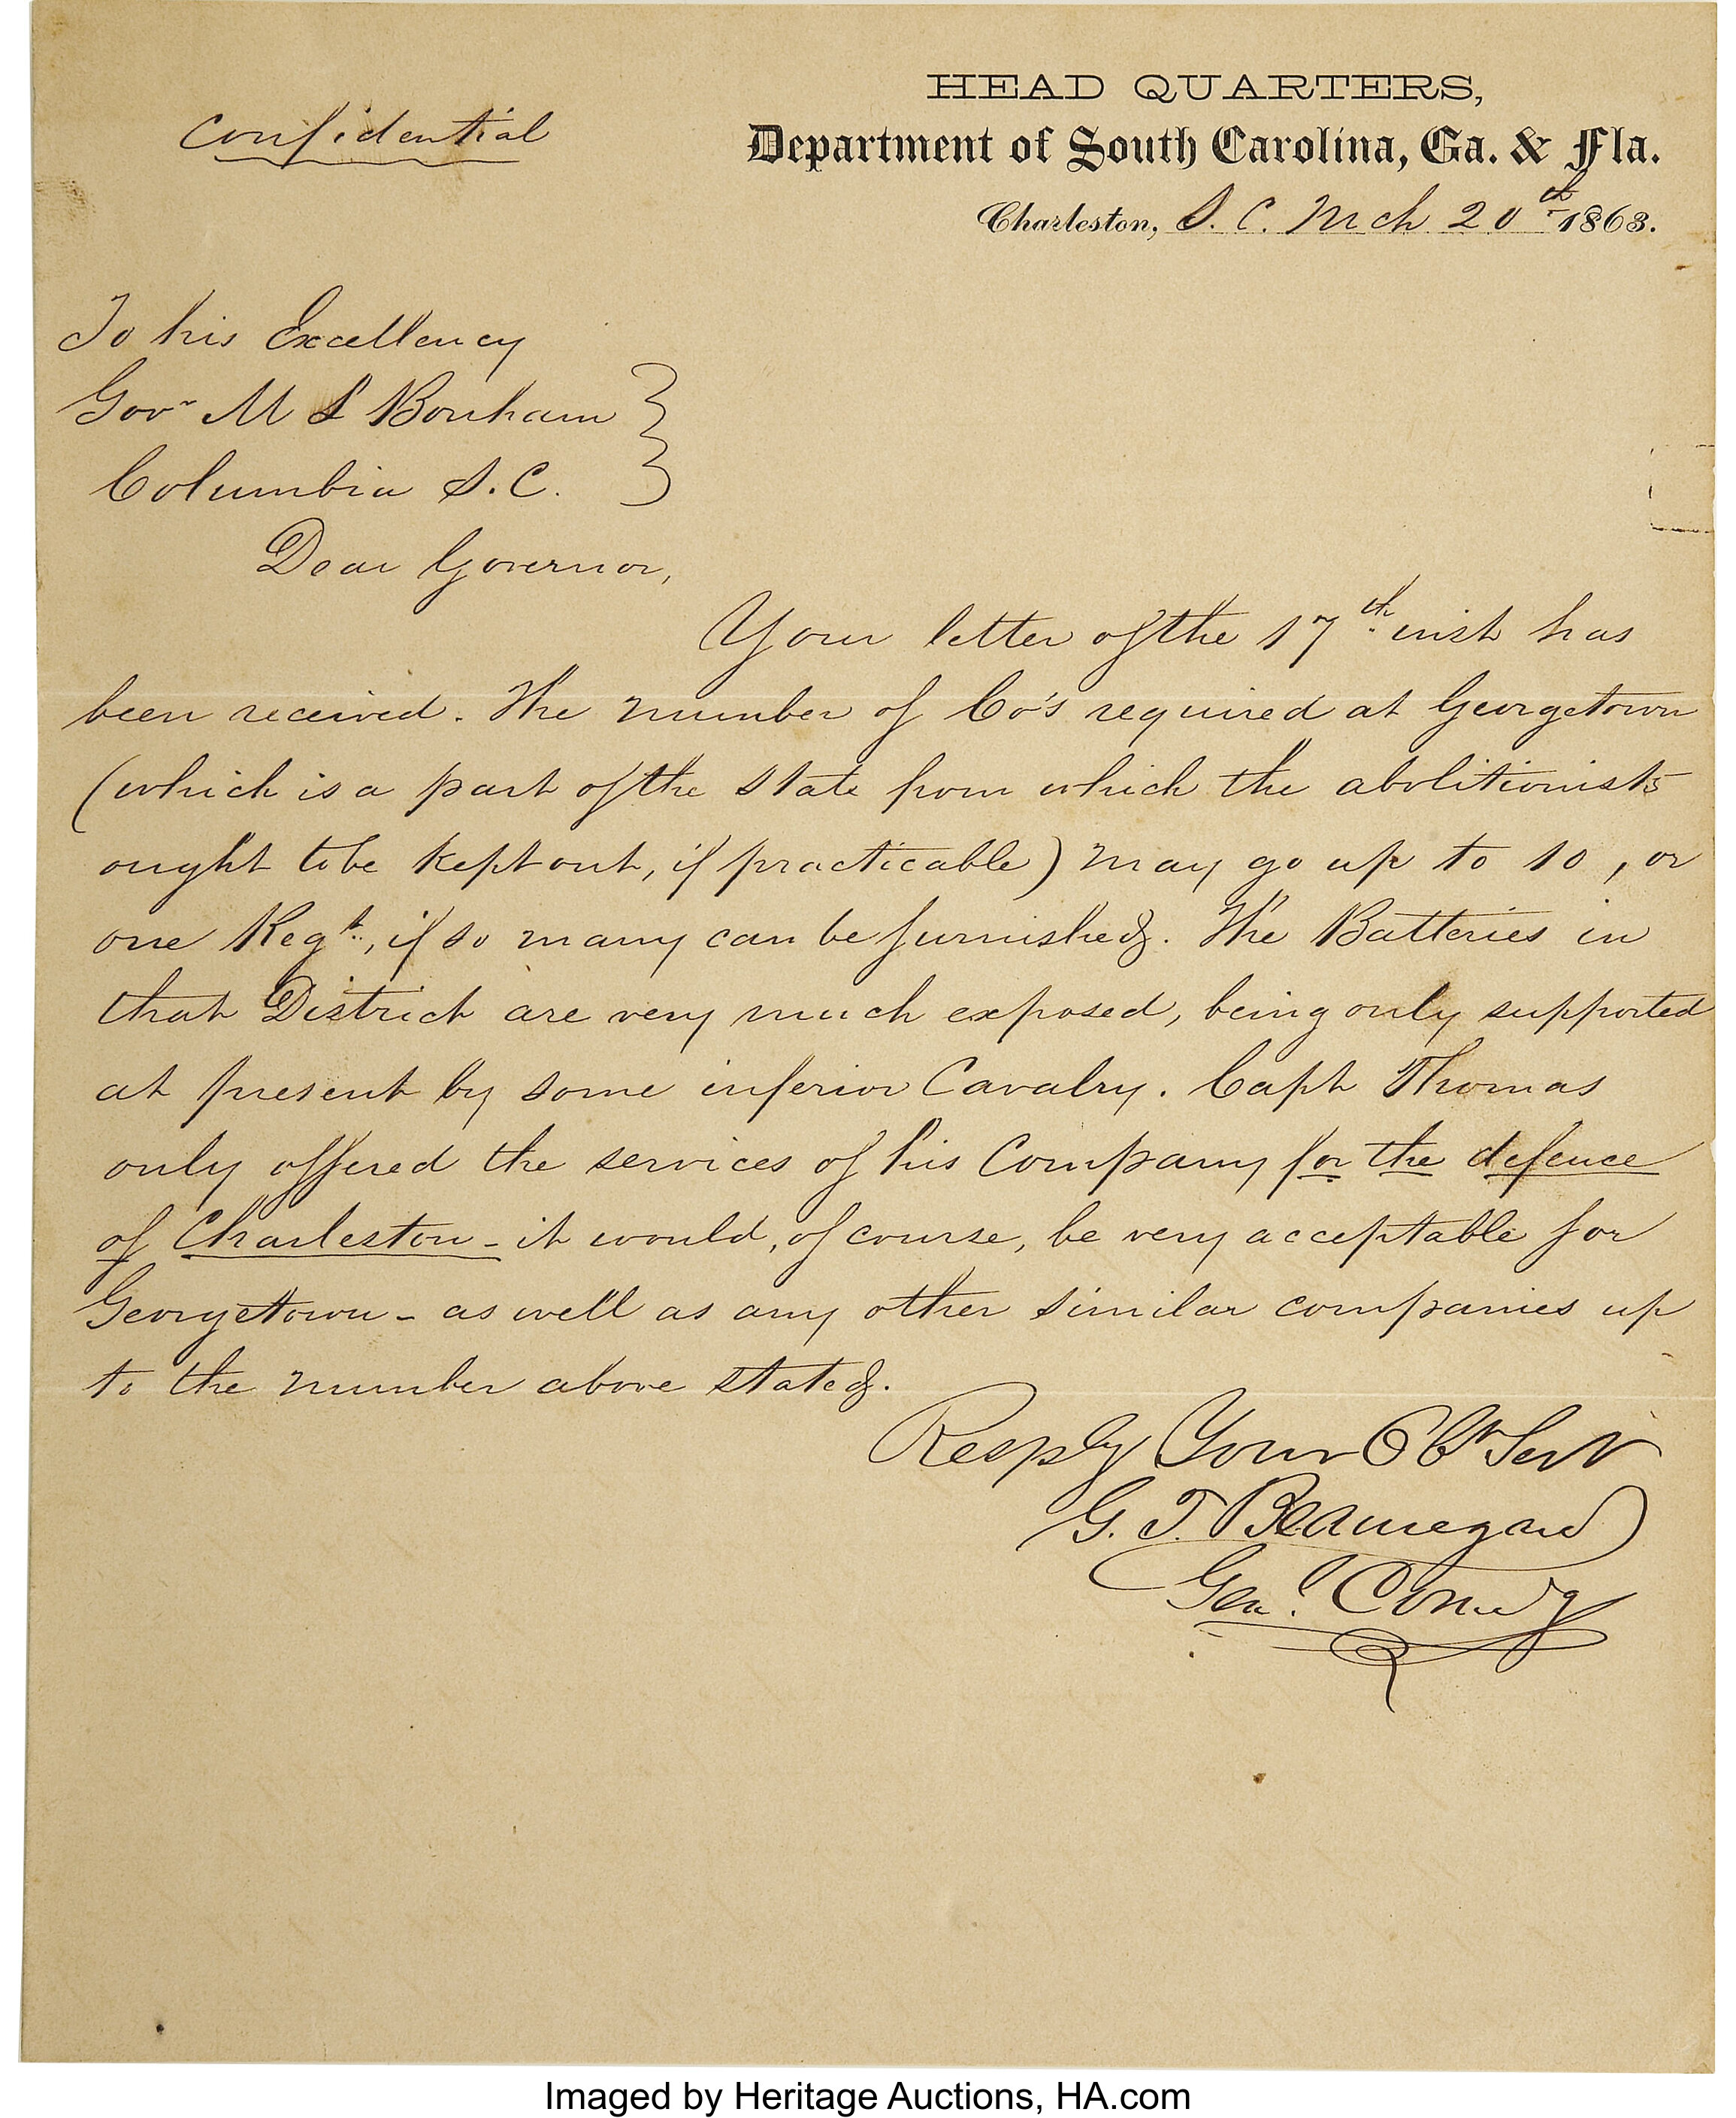 Confidential
HEAD QUARTERS,
Department of South Carolina, Ga. & Fla.
Charleston, S. C. Mch 20th 1863.
To his Excellency
Govr M L Bonham
Columbia S.C.
Dear Governor,
Your letter of the 17th inst has
been received. The number of Co's required at Georgetown
(which is a part of the State from which the abolitionists
ought to be kept out, if practicable) may go up to 10, or
one Regt., if so many can be furnished. The Batteries in
that District are very much exposed, being only supported
at present by some inferior Cavalry. Capt Thomas
only offered the services of his Company for the defence
of Charleston - it would, of course, be very acceptable for
Georgetown - as well as any other similar companies up
to the number above stated.
Resply Your Obt Servt
G. T. Beauregard
Genl. Comdg
Imaged by Heritage Auctions, HA.com